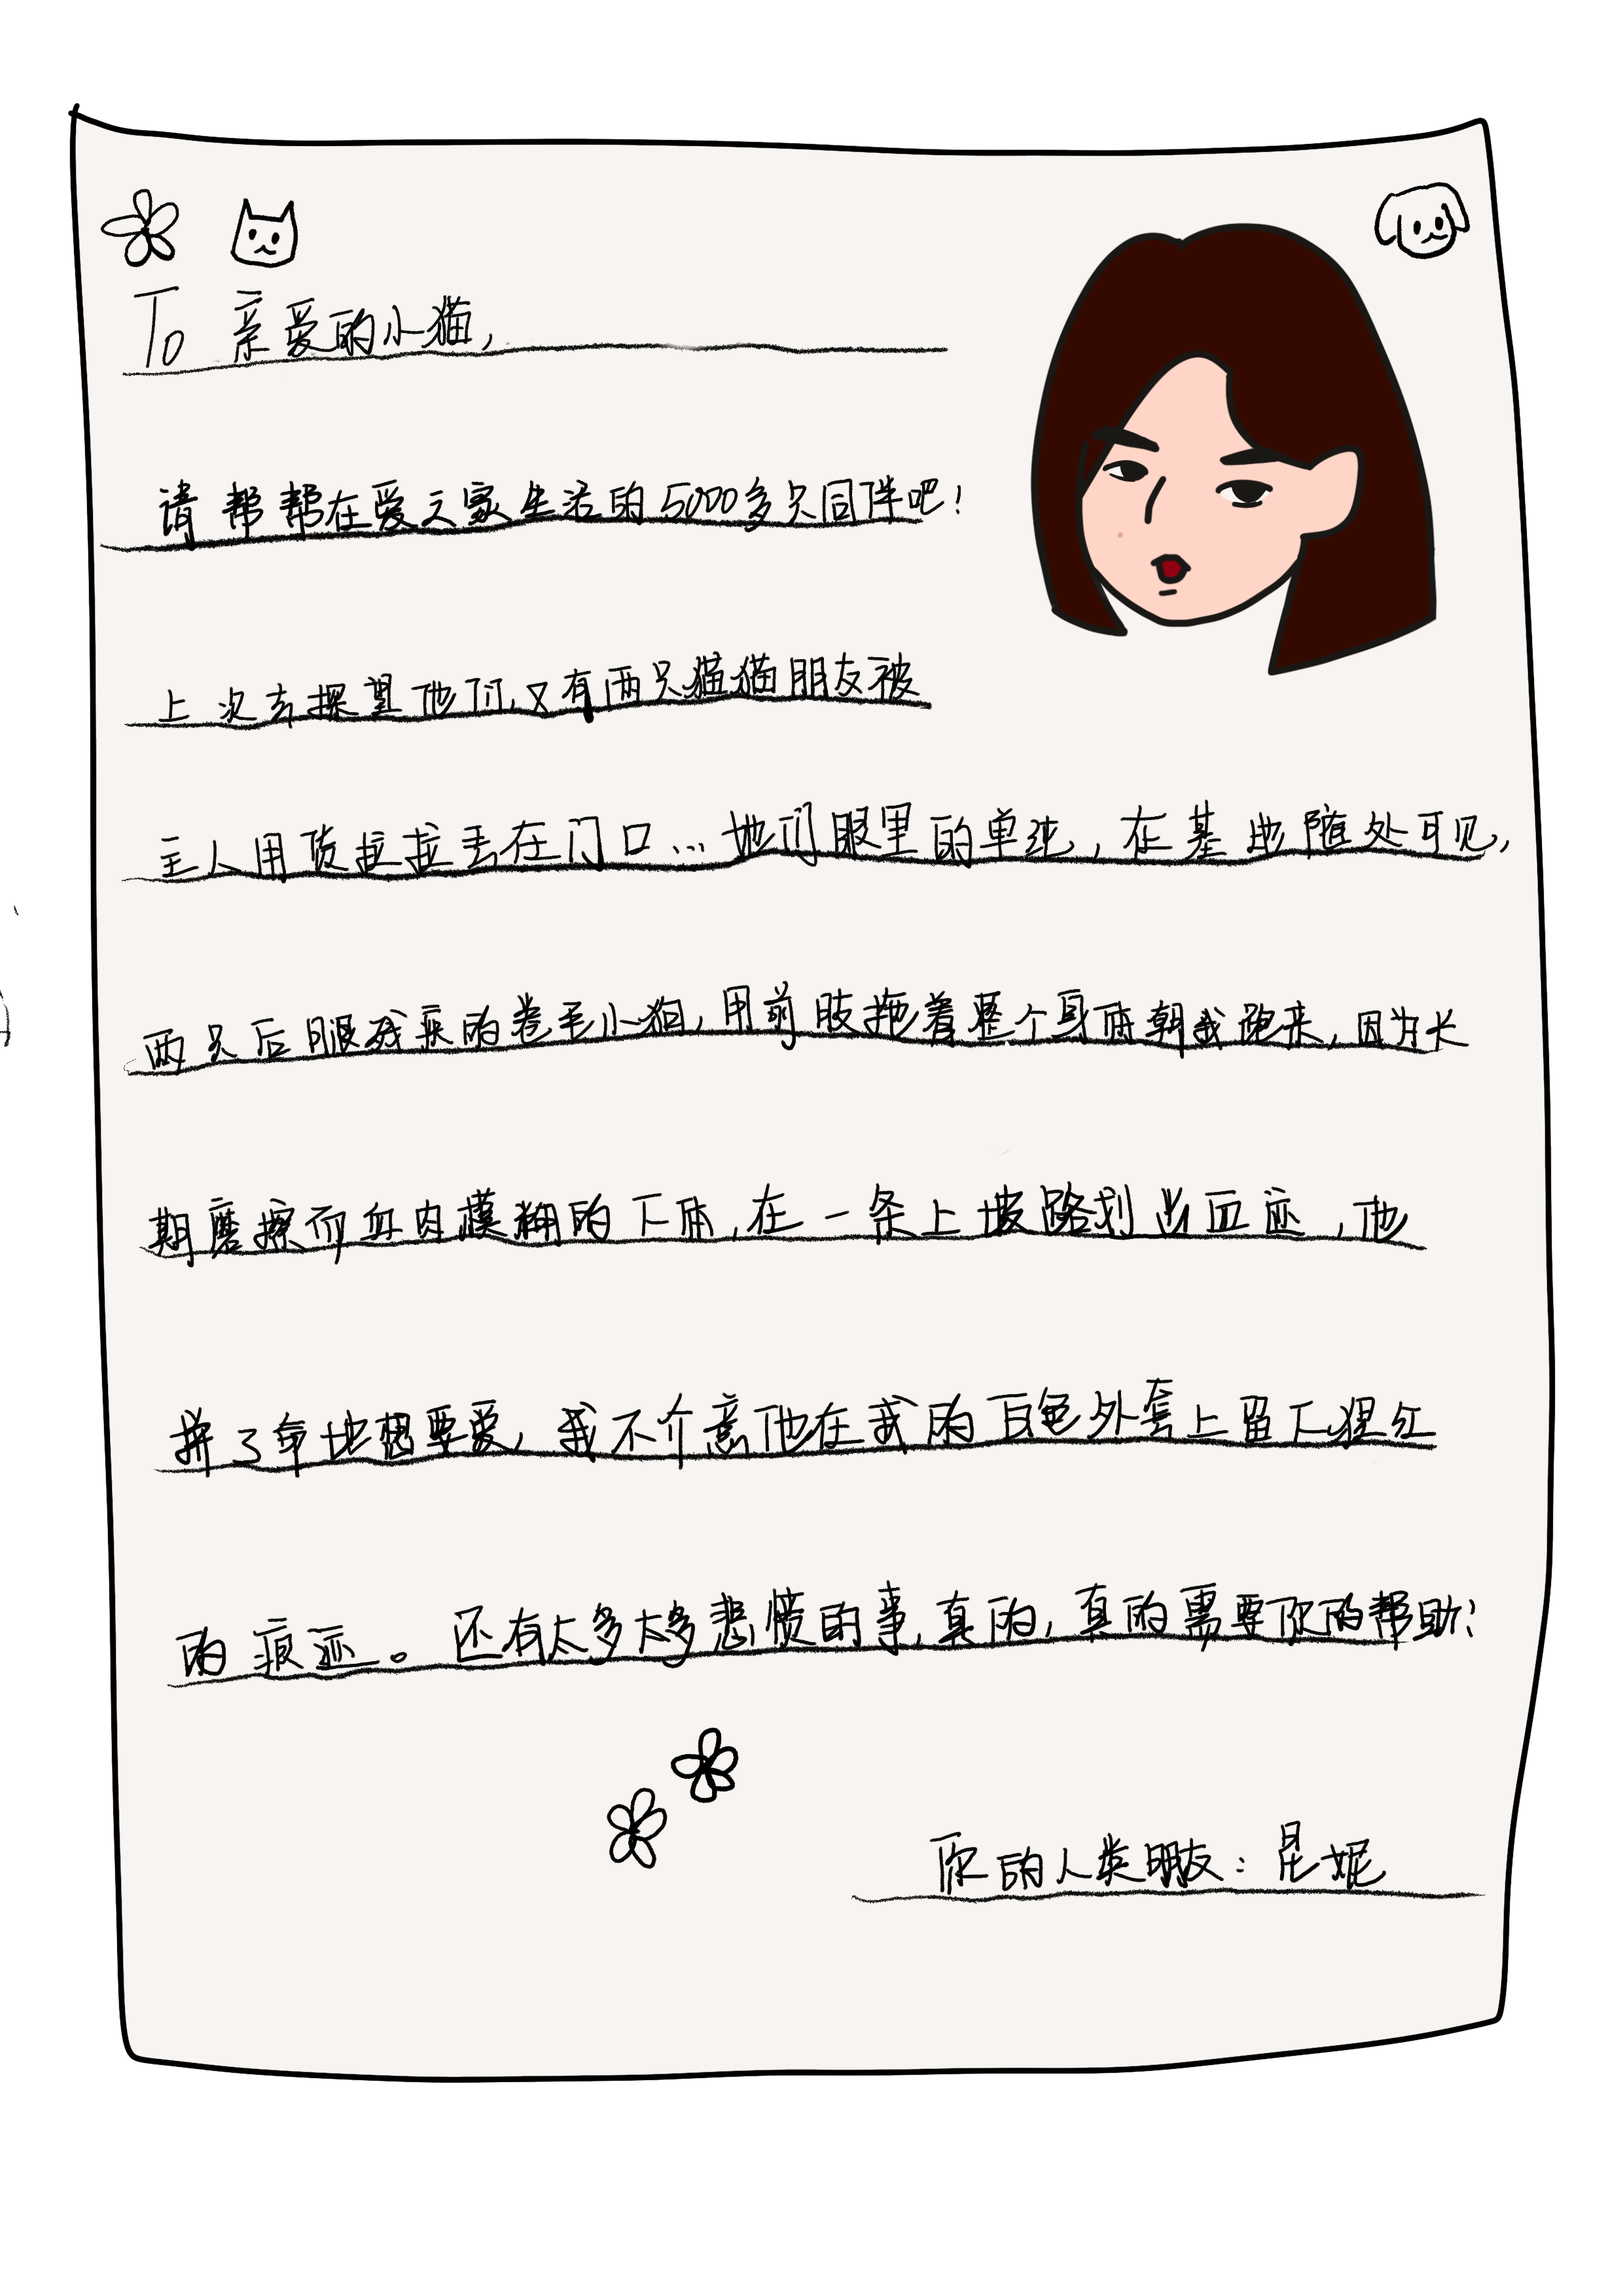 To 亲爱的小猫,
请帮帮在爱之家生活的5000多只同伴吧!
上次去探望他们,又有两只猫猫朋友被
主人用货拉拉丢在门口...她们眼里的单纯,在基地随处可见,
两只后腿残疾的卷毛小狗,用前肢拖着整个身体朝我跑来,因为长
期磨擦而血肉模糊的下体,在一条上坡路划出血迹,他
拼了命地想要爱,我不介意他在我的白色外套上留下猩红
的痕迹。还有太多太多悲愤的事,真的,真的需要你的帮助!
你的人类朋友:昆妮